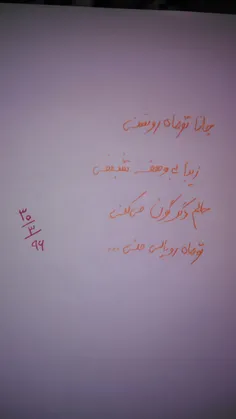 جانا تو ماه روشنی
زیبا بی وصف
حالم دگرگون می‌کنی
تو ماه رویایی منی ...
۳۰/۳/۹۴